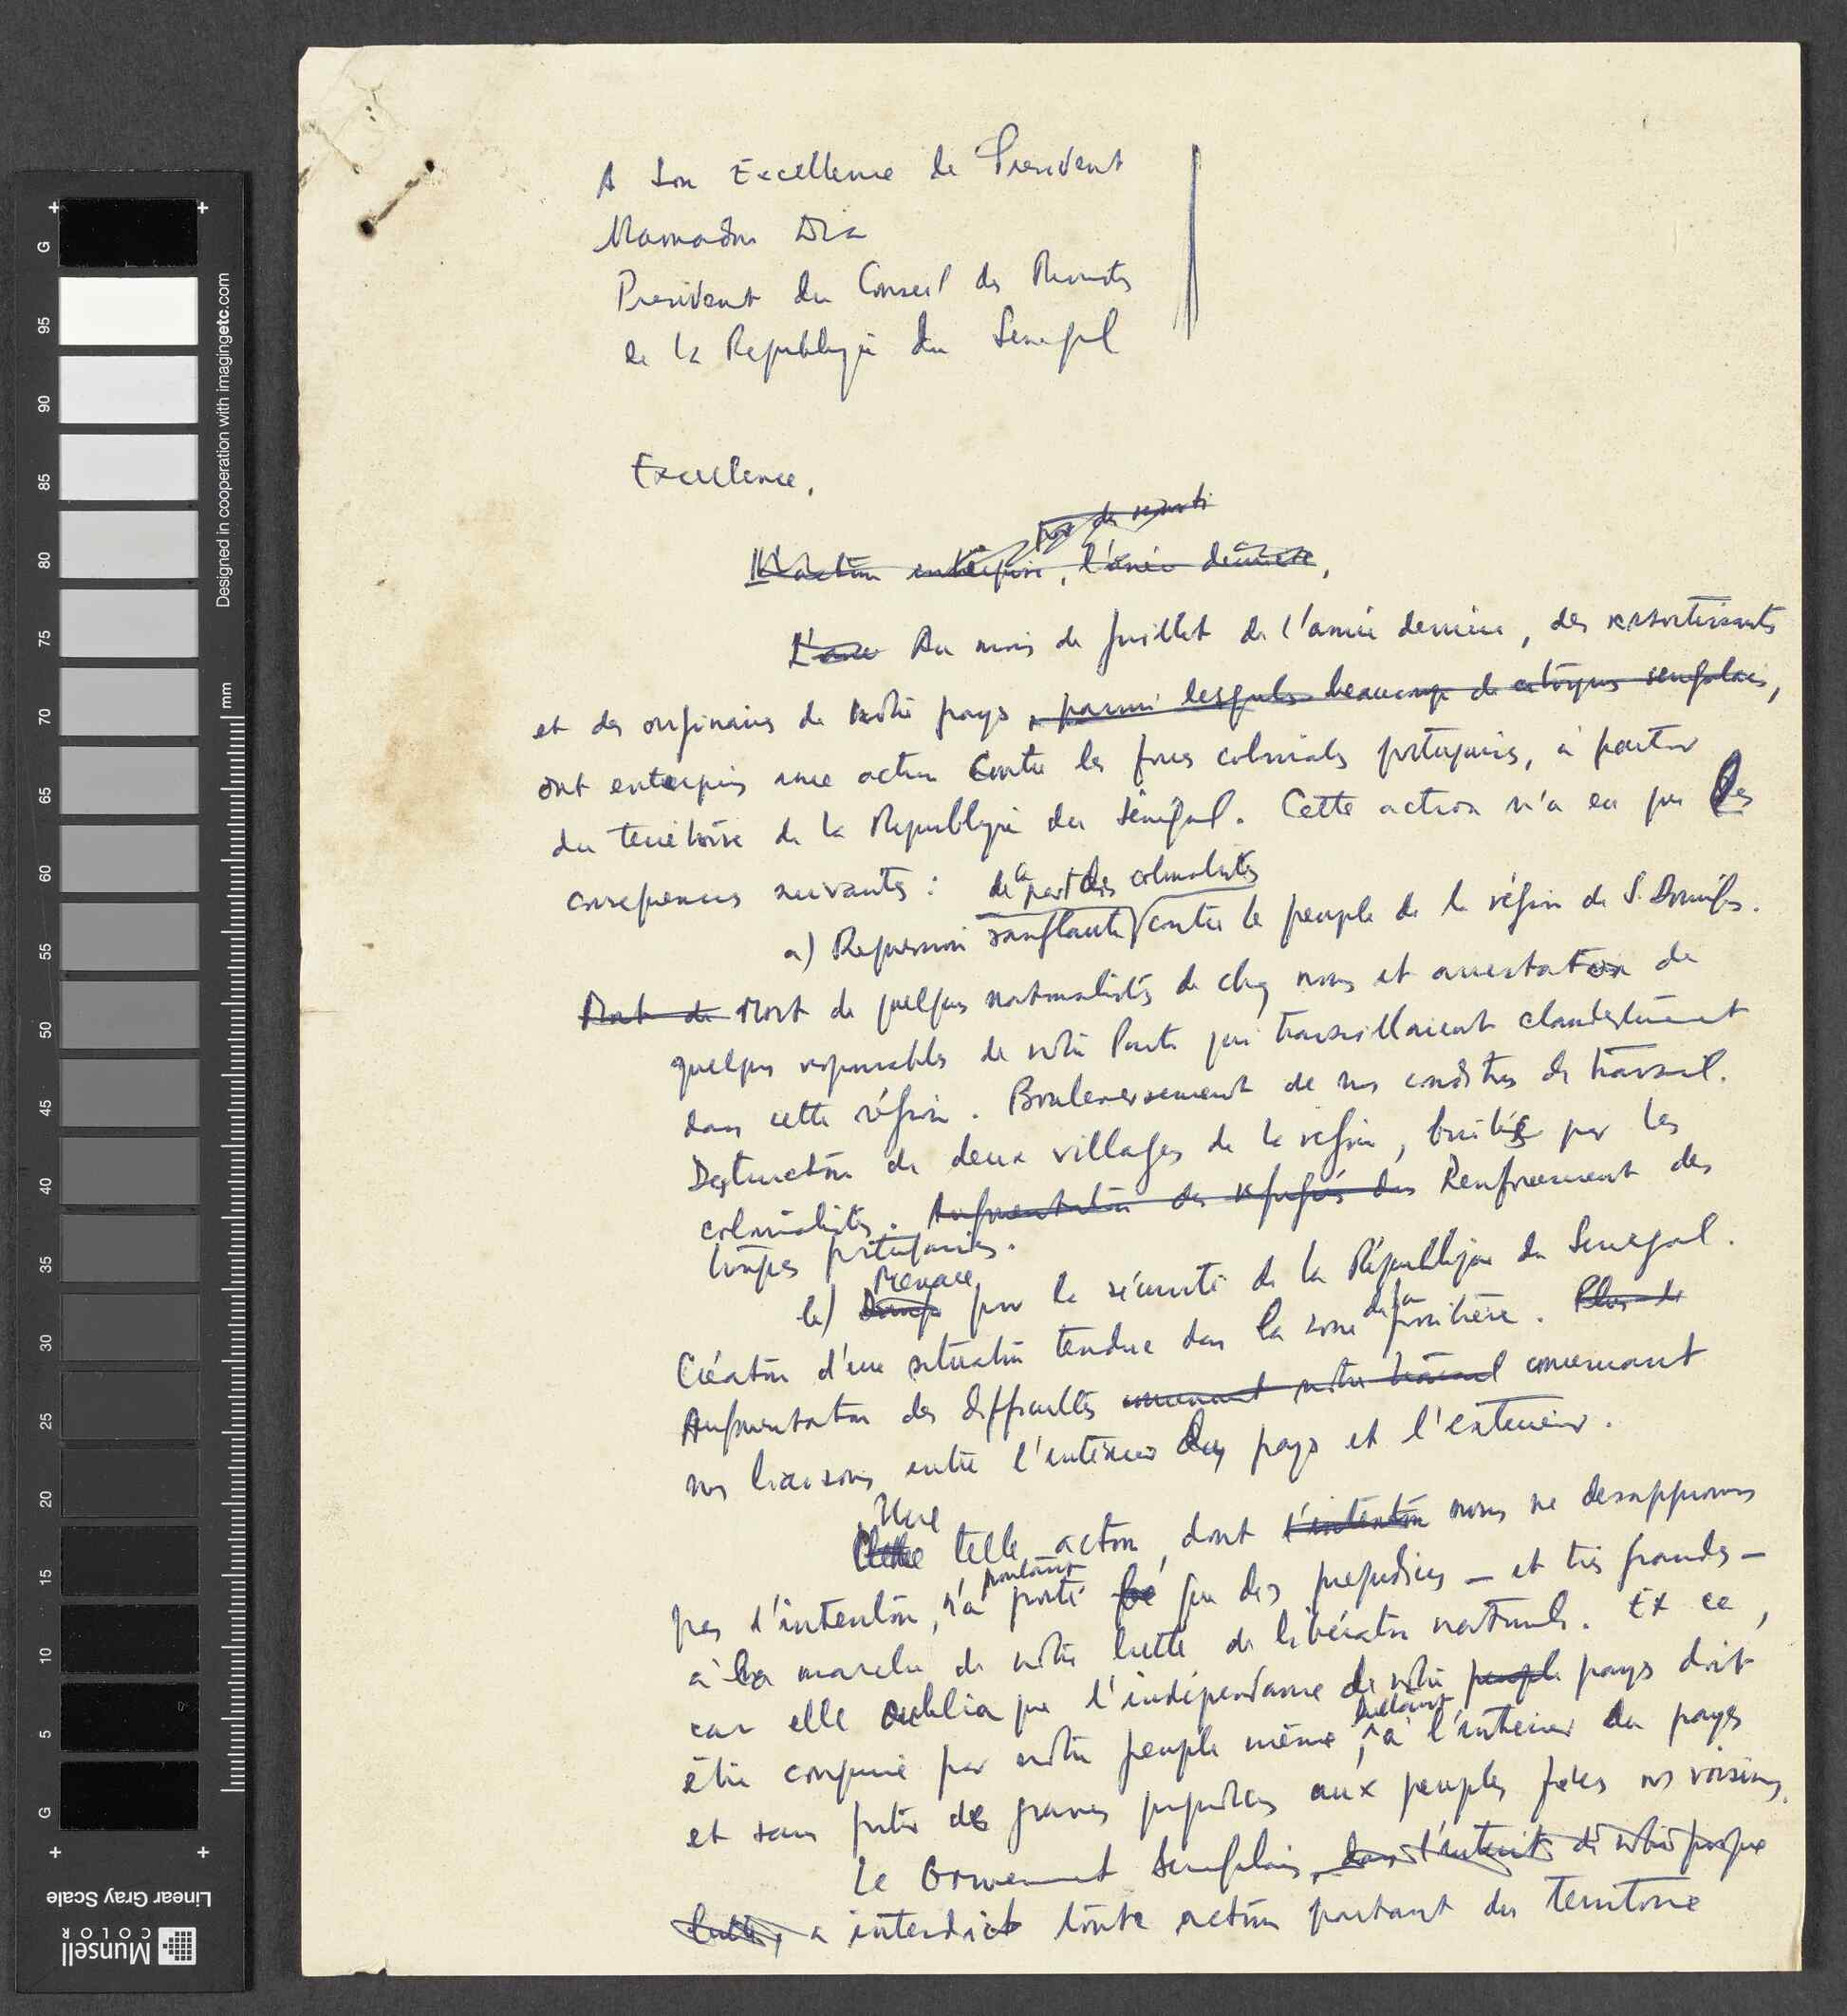 A Son Excellence le President
Mamadou Dia
President du Conseil des Ministres
de la Republique du Senegal
Excellence,
pour des ressorti
L'action entreprise, l'année dernière,
L'anné Au mois de Juillet de l'année dernière, des ressortissants
et des originaires de notre pays, parmi lesquels beaucoup de citoyens senegalais,
ont entrepris une action contre les forces coloniales portugaises, à partir
du territoire de la Republique du Sénégal. Cette action n'a eu que les
consequences suivantes :
de la part des colonialistes
a) Repression sanglante contre le peuple de la région de S. Domingos.
Mort de Mort de quelques nationalistes de chez nous et arrestation de
quelques responsables de notre Parti qui travaillaient clandestinement
dans cette région. Bouleversement de nos conditions de travail.
Destruction de deux villages de la region, brulés par les
colonialistes. Augmentation des refugiés des Renforcement des
troupes portugaises.
Menace
b) Danger pour la sécurité de la République du Senegal.
Création d'une situation tendue dans la zone de la frontière. Plus de
Augmentation des difficultés concernant notre travail concernant
nos liaisons entre l'intérieur du pays et l'exterieur.
Une
Cette telle action, dont l'intention nous ne desapprouvons
pas l'intention, n'a pourtant porté que des prejudices — et très grands —
à la marche de notre lutte de libération nationale. Et ce,
car elle oublia que l'indépendance de notre peuple pays doit
être conquise par notre peuple même, luttant à l'interieur du pays
et sans porter de graves prejudices aux peuples frères nos voisins.
Le Gouvernement Senegalais, dans l'interêt de notre propre
lutte, a interdict toute action partant du Territoire
G
95
90
85
80
75
70
65
60
55
50
45
40
35
30
25
20
15
10
5
G
mm
Designed in cooperation with imagingetc.com
Linear Gray Scale
Munsell
COLOR